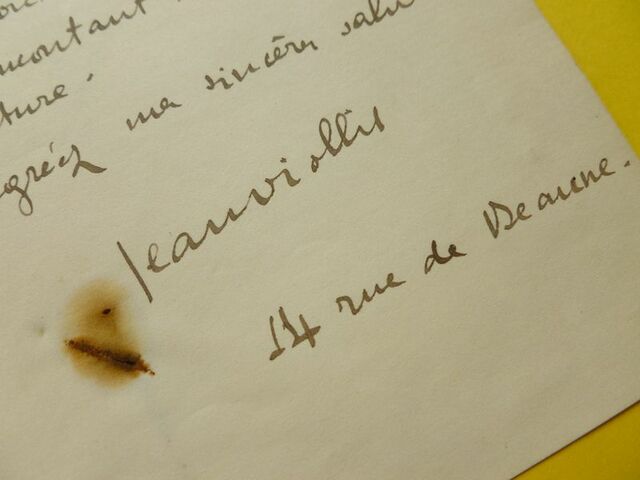 ncontant
ture.
agréez ma sincère salu
Jeanviollis
14 rue de Beaune.